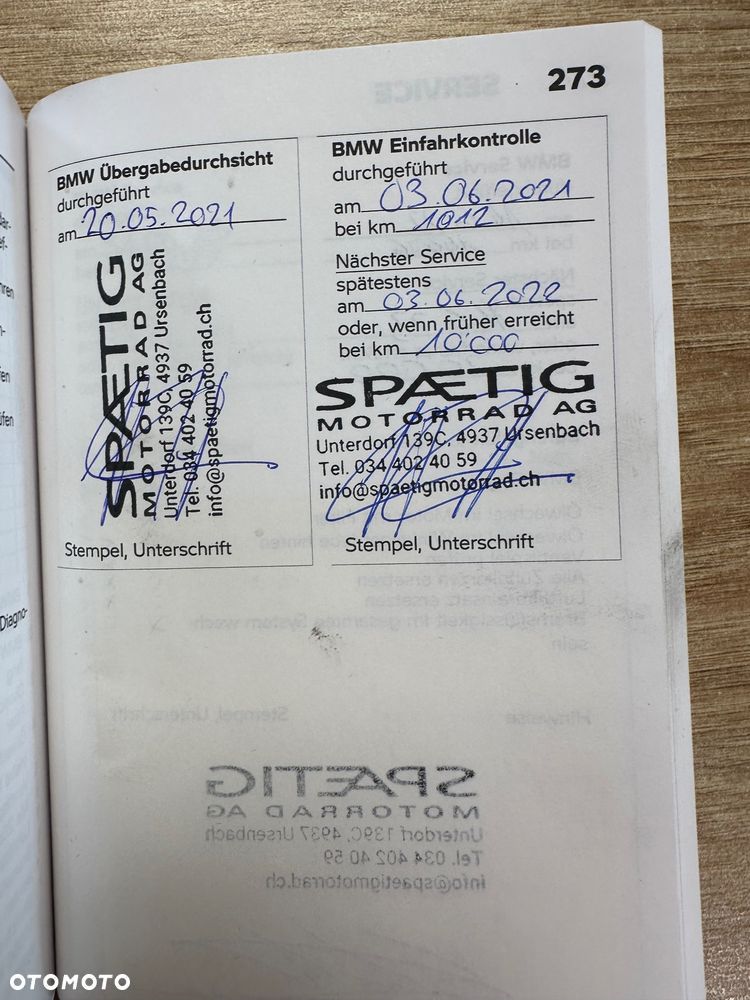 273
BMW Übergabedurchsicht
durchgeführt
am 20.05.2021
SPÆTIG
MOTORRAD AG
Unterdorf 139C, 4937 Ursenbach
Tel. 034 402 40 59
info@spaetigmotorrad.ch
Stempel, Unterschrift
BMW Einfahrkontrolle
durchgeführt
am 03.06.2021
bei km 1012
Nächster Service
spätestens
am 03.06.2022
oder, wenn früher erreicht
bei km 10'000
SPÆTIG
MOTORRAD AG
Unterdorf 139C, 4937 Ursenbach
Tel. 034 402 40 59
info@spaetigmotorrad.ch
Stempel, Unterschrift
SERVICE
Alle Zündkerzen ersetzen
Luftfiltereinsatz ersetzen
Bremsflüssigkeit im gesamten System wech
seln
Hinweise
Stempel, Unterschrift
SPÆTIG
MOTORRAD AG
Unterdorf 139C, 4937 Ursenbach
Tel. 034 402 40 59
info@spaetigmotorrad.ch
Diagno-
OTOMOTO